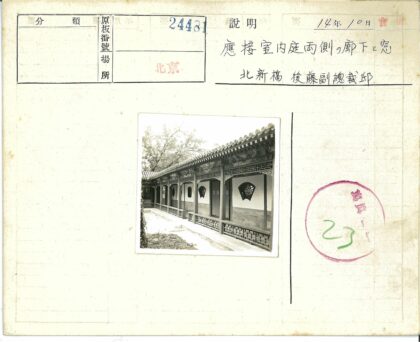 分類
原板番號
場所
24481
北京
說明
14年10月
應接室内庭両側ノ廊下ト窓
北新橋 後藤副總裁邸
23